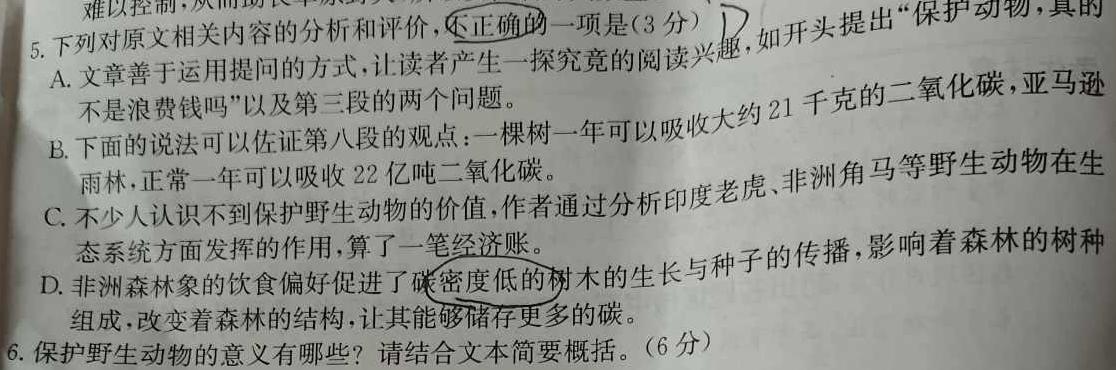 难以控制,从而
5. 下列对原文相关内容的分析和评价,不正确的一项是(3分) D
A. 文章善于运用提问的方式,让读者产生一探究竟的阅读兴趣,如开头提出“保护动物,真的
不是浪费钱吗”以及第三段的两个问题。
B. 下面的说法可以佐证第八段的观点:一棵树一年可以吸收大约21千克的二氧化碳,亚马逊
雨林,正常一年可以吸收22亿吨二氧化碳。
C. 不少人认识不到保护野生动物的价值,作者通过分析印度老虎、非洲角马等野生动物在生
态系统方面发挥的作用,算了一笔经济账。
D. 非洲森林象的饮食偏好促进了碳密度低的树木的生长与种子的传播,影响着森林的树种
组成,改变着森林的结构,让其能够储存更多的碳。
6. 保护野生动物的意义有哪些?请结合文本简要概括。(6分)